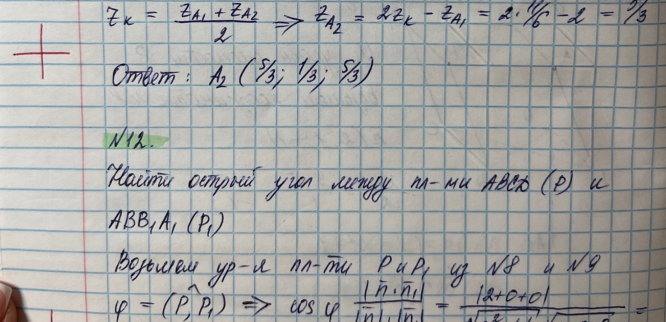 z_K = (z_A₁ + z_A₂)/2 ⇒ z_A₂ = 2z_K − z_A₁ = 2·11/6 − 2 = 5/3
Ответ: A₂ (5/3; 1/3; 5/3)
N12.
Найти острый угол между пл-ми ABCD (P) и
ABB₁A₁ (P₁)
Возьмем ур-я пл-ти P и P₁ из N8 и N9
φ = (P,^P₁) ⇒ cos φ |n̄·n̄₁|/|n̄|·|n̄₁| = |2+0+0|